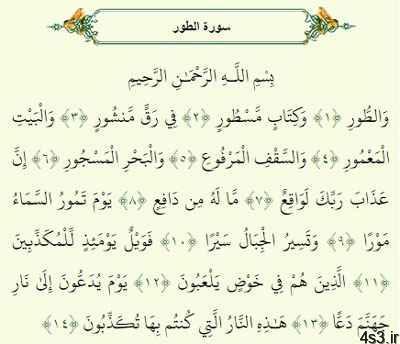 سورة الطور
بِسْمِ اللَّـهِ الرَّحْمَـٰنِ الرَّحِيمِ
وَالطُّورِ ﴿١﴾ وَكِتَابٍ مَّسْطُورٍ ﴿٢﴾ فِي رَقٍّ مَّنشُورٍ ﴿٣﴾ وَالْبَيْتِ
الْمَعْمُورِ ﴿٤﴾ وَالسَّقْفِ الْمَرْفُوعِ ﴿٥﴾ وَالْبَحْرِ الْمَسْجُورِ ﴿٦﴾ إِنَّ
عَذَابَ رَبِّكَ لَوَاقِعٌ ﴿٧﴾ مَّا لَهُ مِن دَافِعٍ ﴿٨﴾ يَوْمَ تَمُورُ السَّمَاءُ
مَوْرًا ﴿٩﴾ وَتَسِيرُ الْجِبَالُ سَيْرًا ﴿١٠﴾ فَوَيْلٌ يَوْمَئِذٍ لِّلْمُكَذِّبِينَ
﴿١١﴾ الَّذِينَ هُمْ فِي خَوْضٍ يَلْعَبُونَ ﴿١٢﴾ يَوْمَ يُدَعُّونَ إِلَىٰ نَارِ
جَهَنَّمَ دَعًّا ﴿١٣﴾ هَـٰذِهِ النَّارُ الَّتِي كُنتُم بِهَا تُكَذِّبُونَ ﴿١٤﴾
4s3.ir